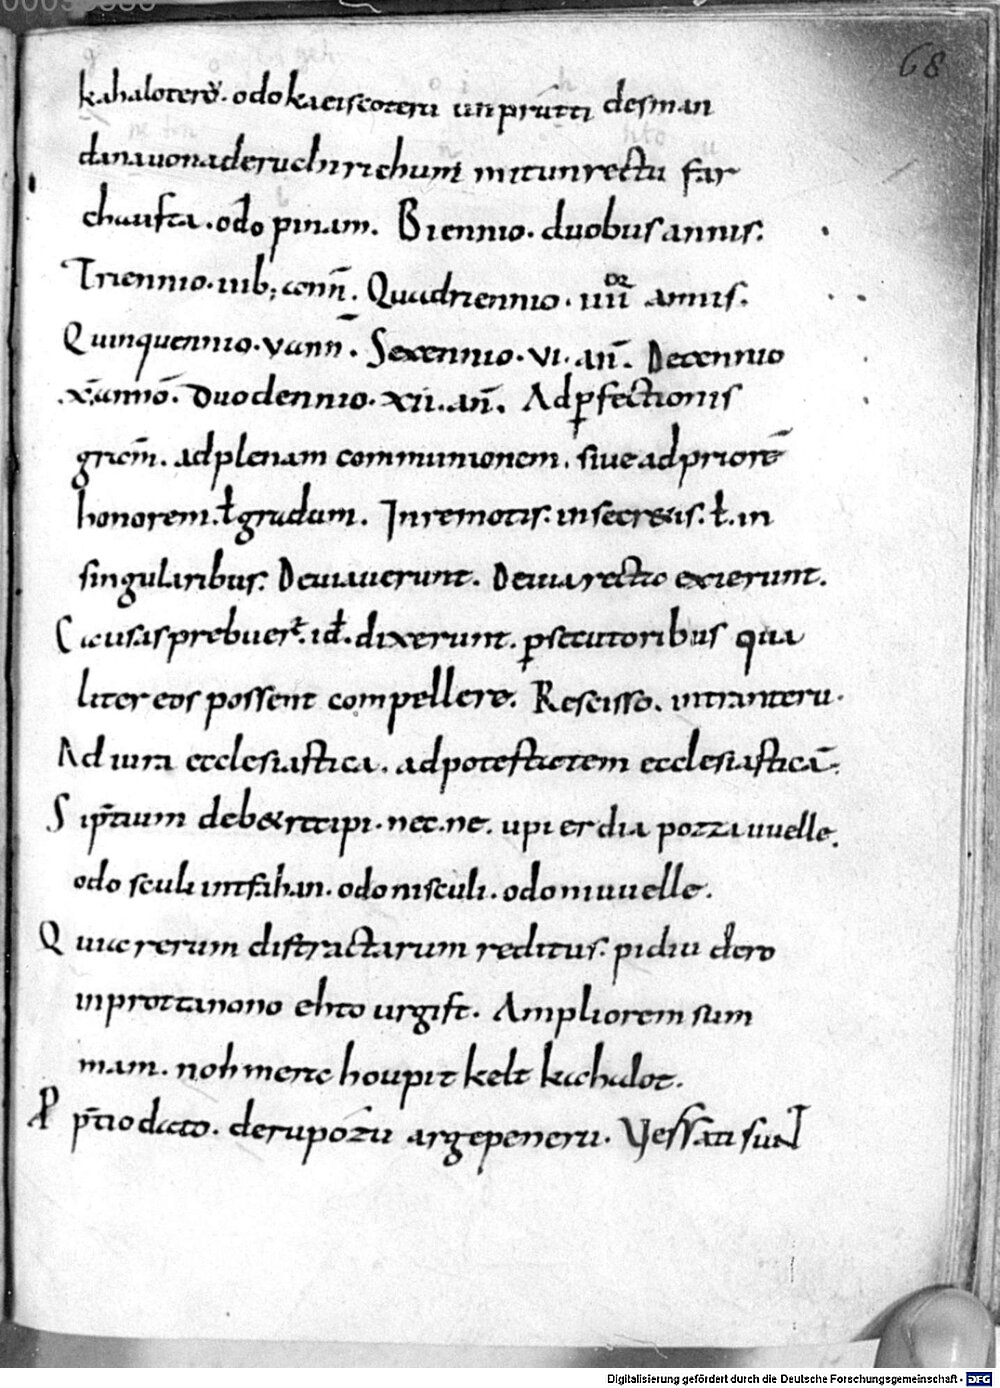 68
kahaloteru. odo kaeiscoteru unprutti desman
danauonaderuchirichuni mitunrectu far
chaufta. odo pinam. Biennio. duobus annis.
Triennio. iiib; ann̄. Quadriennio. iiii or annis.
Quinquennio. v ann̄. Sexennio. vi. an̄. Decennio
x. annō. Duodennio. xii. an̄. Ad ꝑfectionis
gr̄em. ad plenam communionem. siue ad priorē
honorem. ł gradum. Inremotis. in secretis. ł. in
singularibus. Deuiauerunt. Deuia recto exierunt.
Causas prebuer̄. id ̄. dixerunt. ꝑsecutoribus qua
liter eos possent compellere. Rescisso. intranteru.
Ad iura ecclesiastica. ad potestatem ecclesiasticā.
Si p̄tium deb& recipi. nec. ne. upi er dia pozza uuelle.
odo sculi intfahan. odo nisculi. odo niuuelle.
Quae rerum distractarum reditus. pidiu dero
inprottanono ehto urgift. Ampliorem sum
mam. noh mera houpit kelt kachalot.
A p̄tio dato. derupozu argepeneru. Vessati sunt
Digitalisierung gefördert durch die Deutsche Forschungsgemeinschaft - DFG